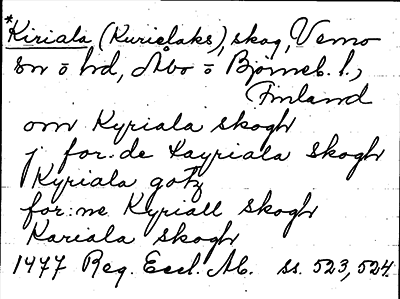 *Kiriala (Kurielaks), skog, Vemo
sn o hd, Åbo o Björneb. l.,
Finland
om Kyriala skogh
j for:de Kayriala skogh
Kyriala gotz
for:ne Kyriall skogh
Kariala skogh
1477 Reg. Eccl. Ab. ss. 523, 524.